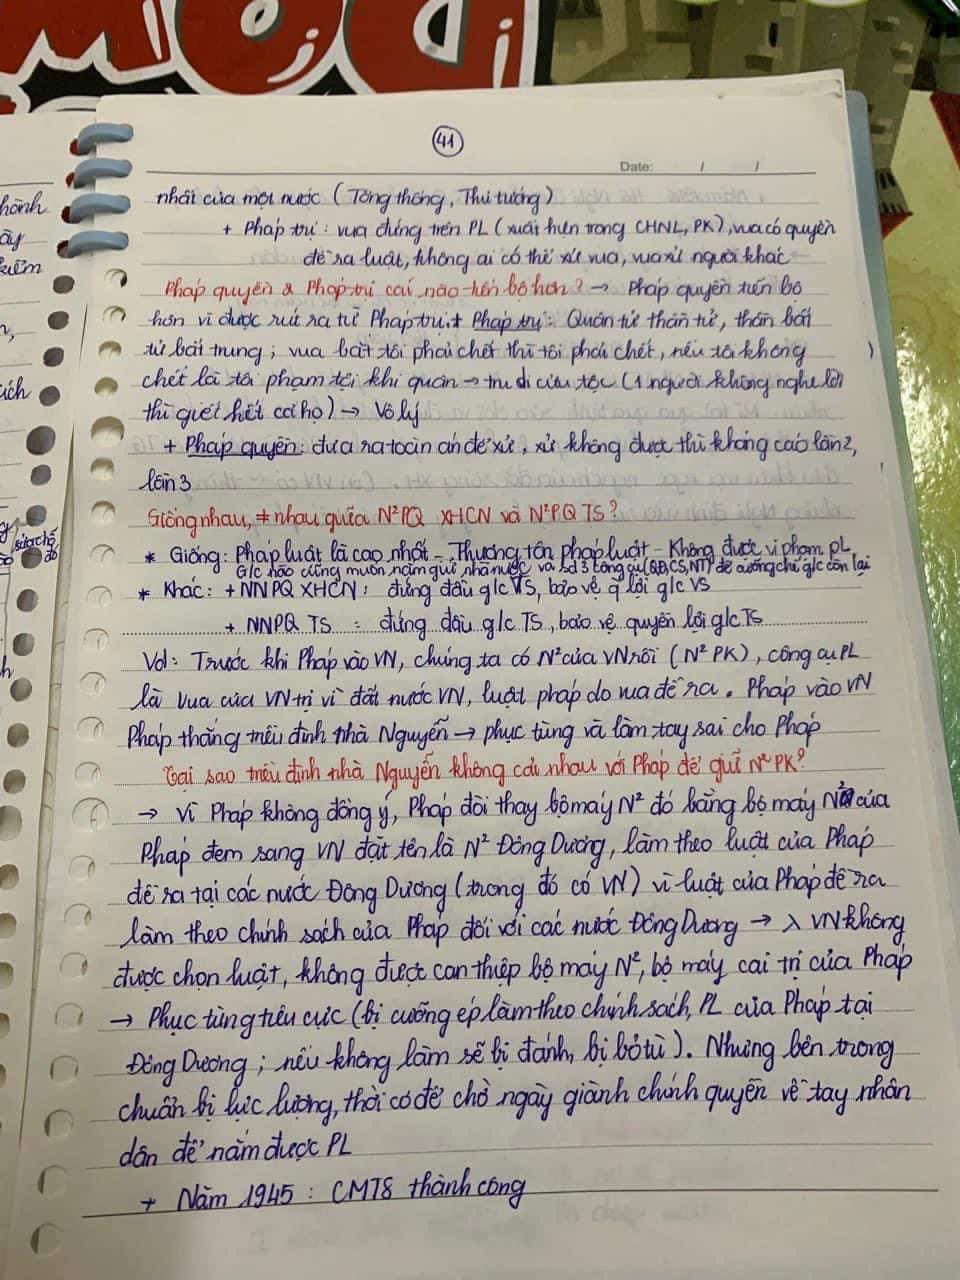 41
Date: / /
nhất của một nước (Tổng thống, Thủ tướng)
+ Pháp trị: vua đứng trên PL (xuất hiện trong CHNL, PK), vua có quyền
đề ra luật, không ai có thể xử vua, vua xử người khác
Pháp quyền & Pháp trị cái nào tiến bộ hơn? → Pháp quyền tiến bộ
hơn vì được rút ra từ Pháp trị. + Pháp trị: Quân tử thần tử, thần bất
tử bất trung; vua bắt tôi phải chết thì tôi phải chết, nếu tôi không
chết là tôi phạm tội khi quân → tru di cửu tộc (1 người không nghe lời
thì giết hết cả họ) → Vô lý
+ Pháp quyền: đưa ra toàn án để xử, xử không được thì kháng cáo lần 2,
lần 3
Giống nhau, ≠ nhau giữa N²PQ XHCN và N²PQ TS?
* Giống: Pháp luật là cao nhất - Thượng tôn pháp luật - Không được vi phạm PL
G/c nào cũng muốn nắm giữ nhà nước và sd 3 công cụ (QĐ, CS, NT) để cưỡng chế g/c còn lại
* Khác: + NNPQ XHCN: đứng đầu g/c VS, bảo vệ q lợi g/c VS
+ NNPQ TS: đứng đầu g/c TS, bảo vệ quyền lợi g/c TS
Vd: Trước khi Pháp vào VN, chúng ta có N² của VN rồi (N² PK), công cụ PL
là Vua của VN trị vì đất nước VN, luật pháp do vua đề ra. Pháp vào VN
Pháp thắng triều đình nhà Nguyễn → phục tùng và làm tay sai cho Pháp
Tại sao triều đình nhà Nguyễn không cãi nhau với Pháp để giữ N² PK?
→ Vì Pháp không đồng ý, Pháp đòi thay bộ máy N² đó bằng bộ máy N² của
Pháp đem sang VN đặt tên là N² Đông Dương, làm theo luật của Pháp
đề ra tại các nước Đông Dương (trong đó có VN) vì luật của Pháp đề ra
làm theo chính sách của Pháp đối với các nước Đông Dương → λ VN không
được chọn luật, không được can thiệp bộ máy N², bộ máy cai trị của Pháp
→ Phục tùng tiêu cực (bị cưỡng ép làm theo chính sách, PL của Pháp tại
Đông Dương; nếu không làm sẽ bị đánh, bị bỏ tù). Nhưng bên trong
chuẩn bị lực lượng, thời cơ để chờ ngày giành chính quyền về tay nhân
dân để nắm được PL
+ Năm 1945: CMT8 thành công